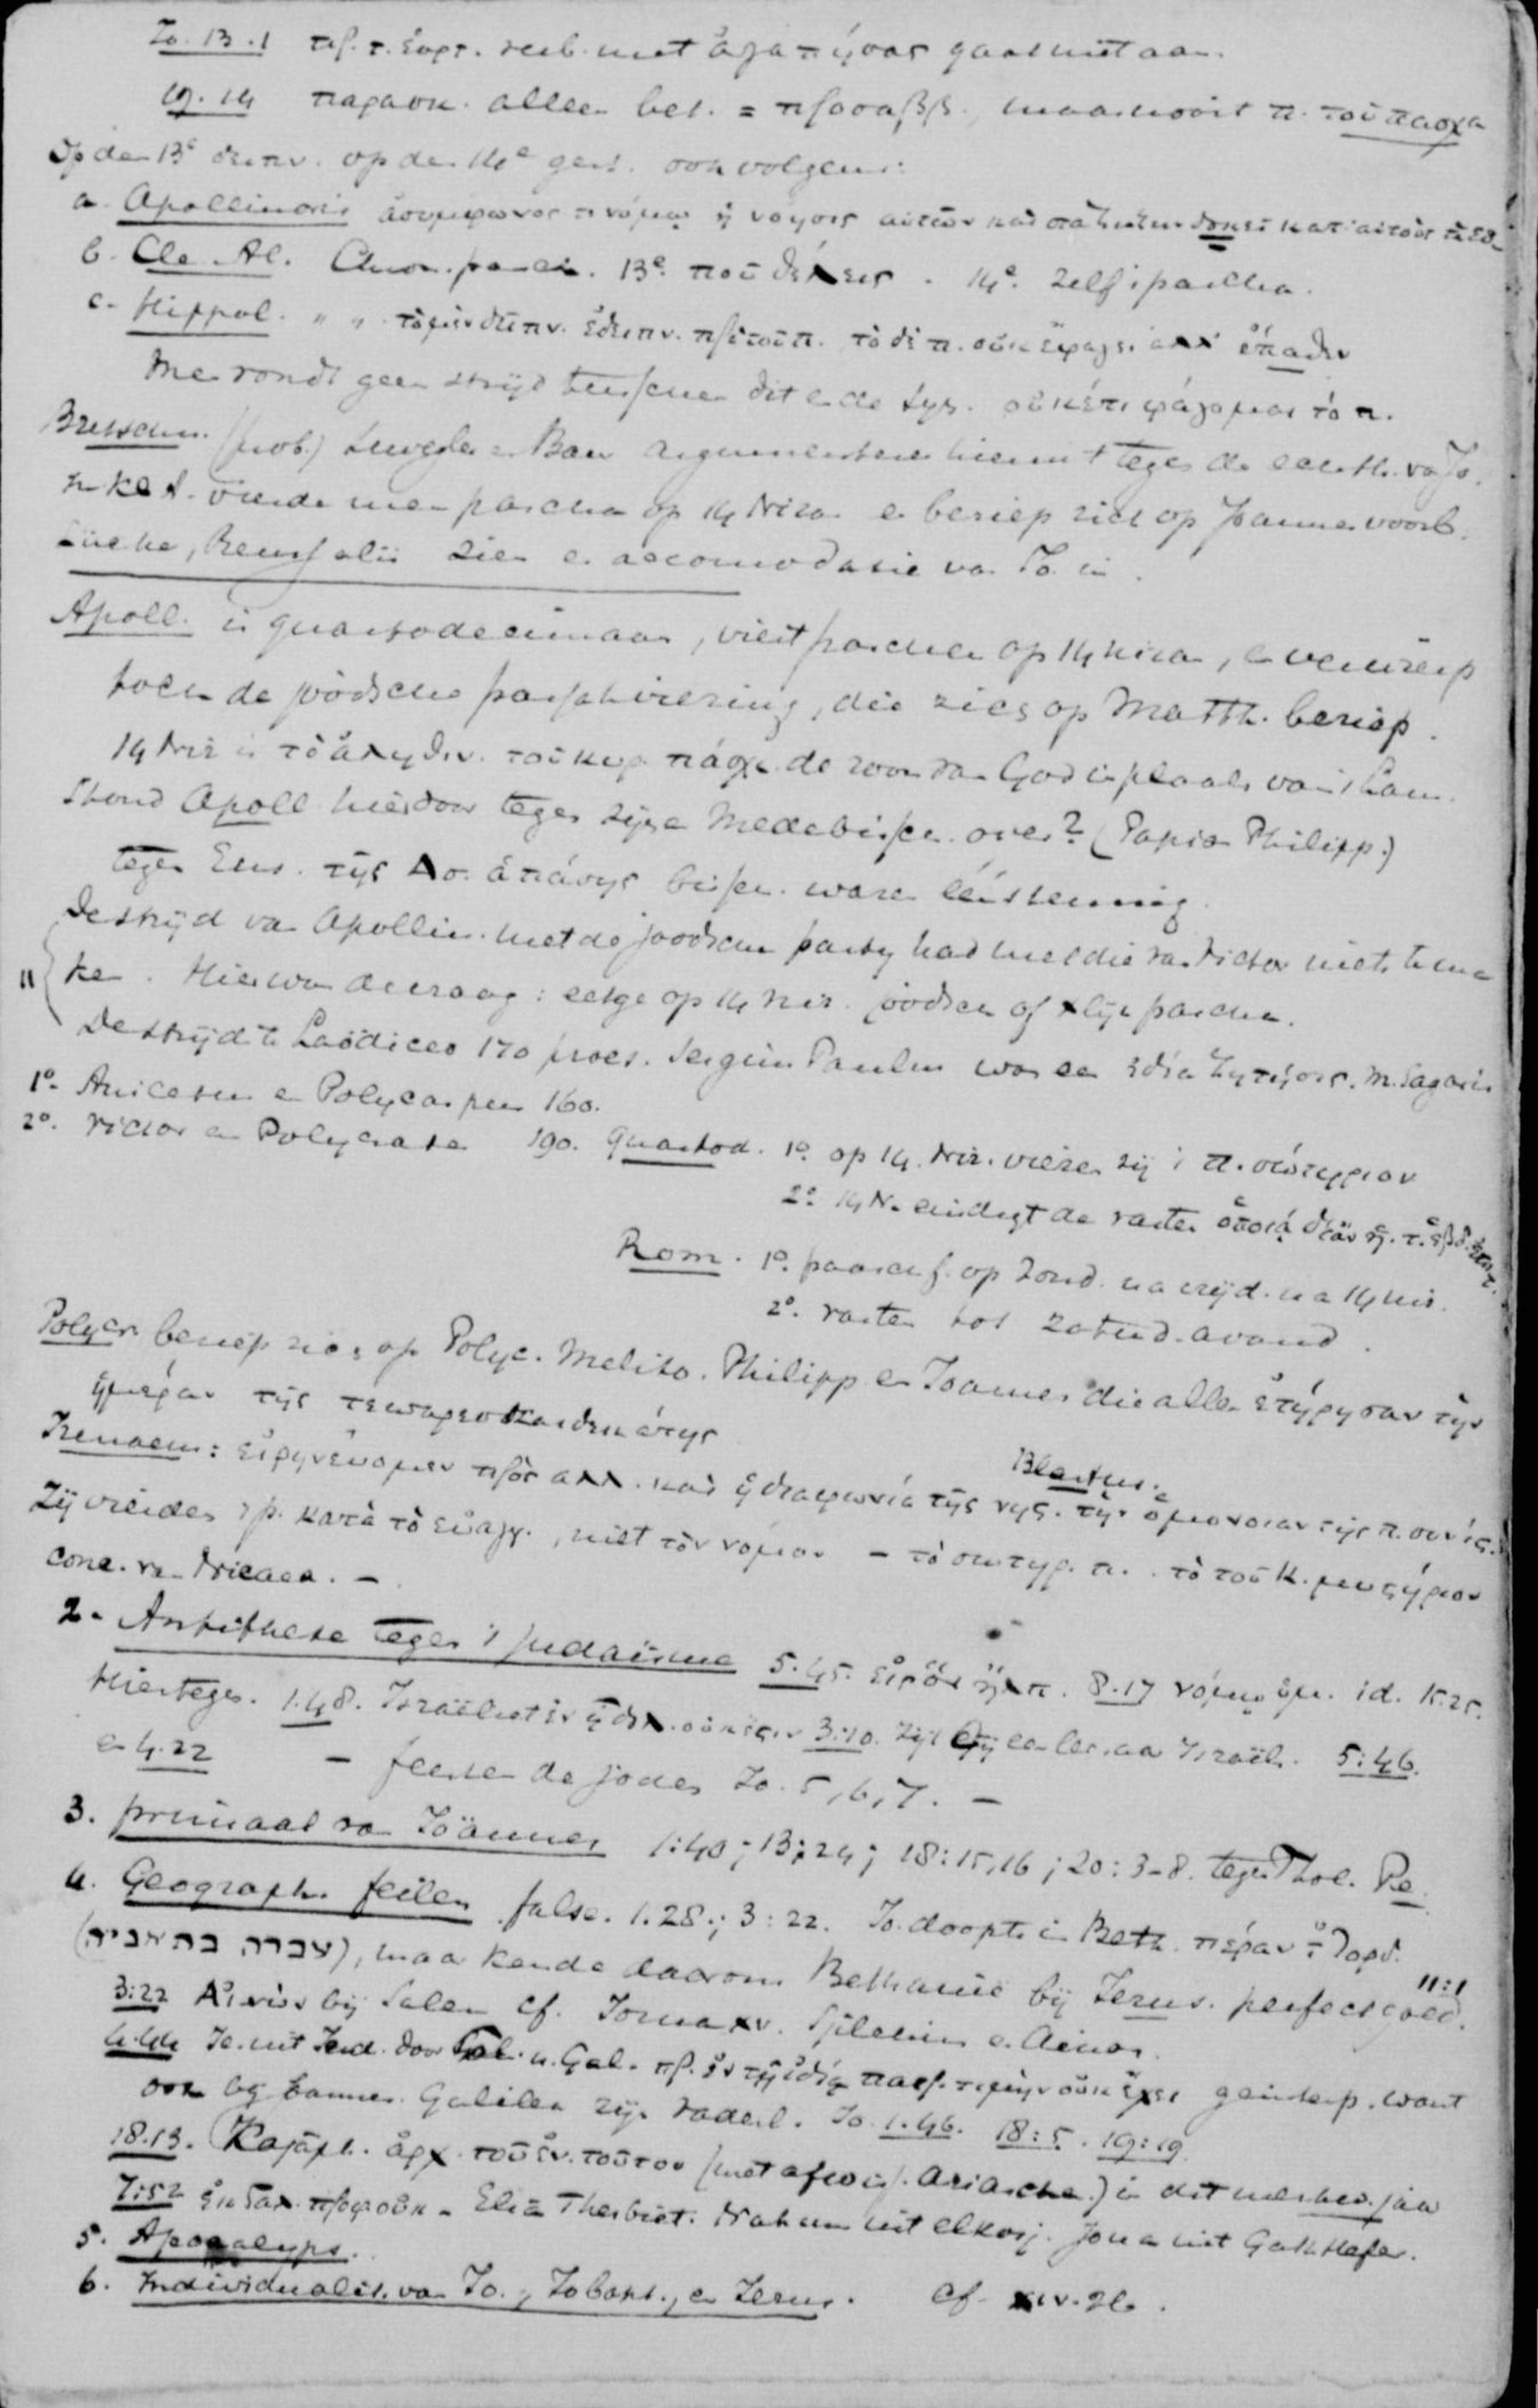 Jo. 13.1 πρ. τ. ἑορτ. verb. met ἀγαπήσας gaat niet aan.
19.14 παρασκ. alleen bet. = προσαββ., maar nooit π. τοῦ πασχα
Op den 13e δειπν. op den 14e gest. ook volgens:
a. Apollinaris ἀσυμφωνος τ. νόμῳ ἡ νόησις αὐτῶν καὶ στασιάζειν δοκεῖ κατ' αὐτοὺς τὰ εὐ
b. Cle. Al. Chron. pasch. 13e. ποῦ θέλεις. 14e. zelf 't pascha.
c. Hippol. " " τὸ μὲν δεῖπν. ἐδειπν. πρὸ τοῦ π. τὸ δὲ π. οὐκ ἔφαγεν ἀλλ' ἔπαθεν
Men vondt geen strijd tusschen dit en de Syn. οὐκέτι φάγομαι τὸ π.
Bretschn. (prob.) Schwegler en Baur argumenteeren hieruit tegen de echth. v. Jo.
In Kl. A. vierde men pascha op 14 Nisan en beriep zich op Joannes voorb.
Lücke, Reuss alii zien er accomodatie van Jo. in.
Apoll. is quartodecimaan, viert pascha op 14 nisan, en verwierp
toch de joodsche paschaviering, die zich op Matth. beriep.
14 Nis is τὸ ἀληθιν. τοῦ κυρ. πάσχα. de zoon van God in plaats van 't Lam.
Stond Apoll hierdoor tegen zijne Medebissch. over? (Papias Philipp.)
tegen Eus. τῆς Ασ. ἁπάσης bissch. waren éénstemmig.
De strijd van Apollin. met de joodsche party had met die van Victor niets te ma
ken. Hier was de vraag: eetge op 14 nis. joodsch of χlijk pascha.
De strijd te Laodicea 170 procs. Sergius Paulus was een ἰδία ζητήσις. M. Sagaris
1o. Anicetus en Polycarpus 160.
2o. Victor en Polycrates 190. Quartod. 1o. op 14. Nis. vieren zij 't π. σωτηριον
2o. 14 N. eindigt de vasten ὁποίᾳ δ' ἂν ἡ. τ. ἑβδ.
Rom. 1o. paaschf. op Zond. na vrijd. na 14 nis.
2o. vasten tot Zaturd. avond.
Polycr. beriep zich op Polyc. Melito. Philipp en Joannes die allen ἐτήρησαν τὴν
ἡμέραν τῆς τεσσαρεσκαιδεκάτης
Blastus.
Irenaeus: εἰρηνεύομεν πρὸς αλλ. καὶ ἡ διαφωνία τῆς νης. τὴν ὁμονοιαν τῆς π. συνίς.
Zij vierden 't p. κατὰ τὸ εὐαγγ., niet τὸν νόμον – τὸ σωτηρ. π. . τὸ τοῦ Κ. μυστήριον
conc. van Nicaea. –
2. Antithese tegen 't Judaisme 5.45. εἰς ὃν ἠλπ. 8.17 νόμῳ ὑμ. id. 15.25.
Hiertegen. 1.48. Israëliet ἐν ᾧ δολ. οὐκ ἔςιν 3:10. Zijt Gij een leeraar Israëls. 5:46.
en 4.22 – feesten der joden Jo. 5, 6, 7. –
3. primaat van Joännes 1:40; 13:24; 18:15,16; 20:3-8. tegen Thol. Pe.
4. Geograph. feilen false. 1.28.; 3:22. Jo. doopte in Beth. πέραν τ. Ἰορδ.
(עברה בתאניה), maar kende daarom Bethanië bij Jerus. perfect goed. 11:1
3:22 Αἰνὼν bij Salem cf. Josua xv. Sjilchim en Ainon.
4.44 Je. uit Jud. door Gal. n. Gal. πρ. ἐν τῇ ἰδίᾳ πατρ. τιμὴν οὐκ ἔχει geinterp. want
ook bij Joannes Galilea zijn vaderl. Jo. 1.46. 18:5. 19:19
18.13. Καϊάφ. ἀρχ. τοῦ ἐν. τούτου (met afwiss. Aziarcha.) in dit merkw. jaar
7:52 ἐκ Γαλ. προφ οὐκ – Elia Thesbiet. Nahum uit elkosj. Jona uit Gath Hefer.
5. Apocalyps.
6. Individualit. van Jo., Jo bapt., en Jezus. cf. xiv. 26.